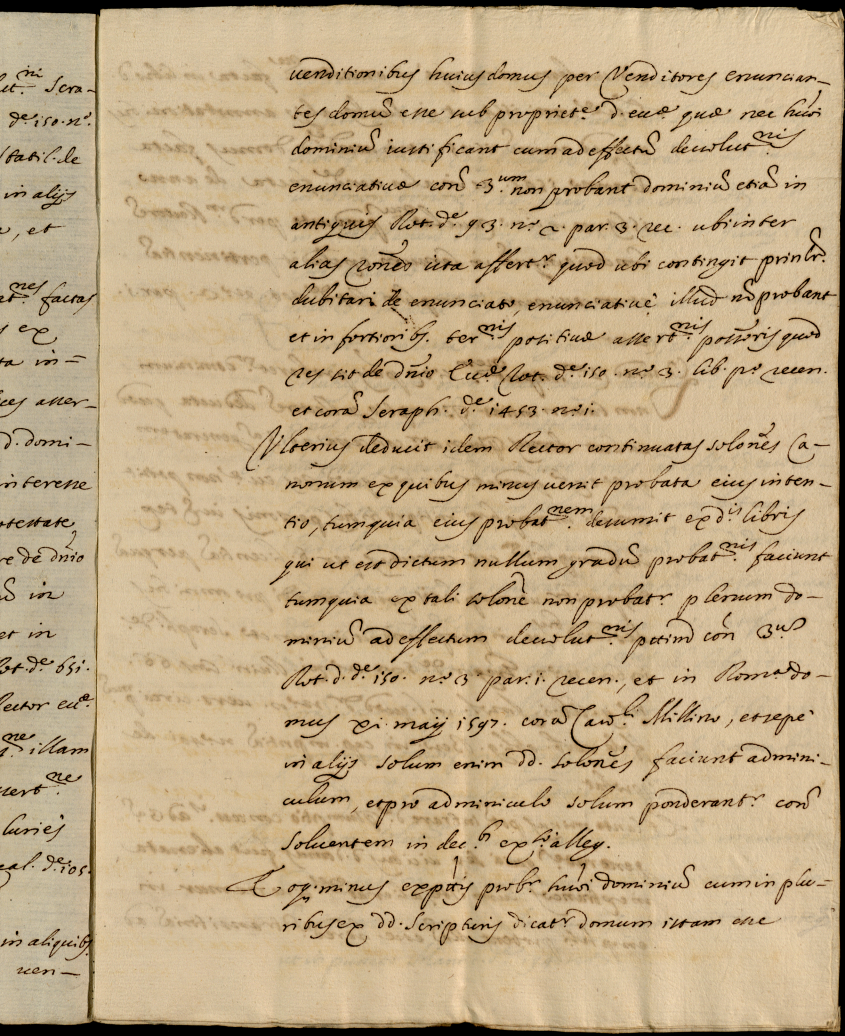 ni Scra-
de. 150. nº.
in alijs
e, et
nes factas
s ex
ta in=
ces asser-
d. domi-
interesse
ũ in
et in
Rot. de. 651.
Rector eccᵉ.
ne illam
ne
luries
cal. de. 105.
in aliquibȝ
uen-
uenditionibus huius domus per Venditores enuncian-
tes domũ esse sub proprietᵉ d. eccæ quæ nec huiõi
dominiũ iustificant cum ad effectũ deuolutⁿⁱˢ
enunciatiuæ corã 3ᵘᵐ non probant dominiũ etiã in
antiquis Rot. dᵉ. 93. nº. 2. par. 3. rec. ubi inter
alias rones ista assertʳ. quod ubi contingit prinlr.
dubitari de enunciato, enunciatiuè illud nõ probant
et in fortioribȝ. terⁿⁱˢ positiuæ assertⁿⁱˢ possoris quod
res sit de dñio Eccæ Rot. dᵉ. 150. nº. 3. lib. pº recen.
et corã Seraph. dᵉ. 1453. nº. 1.
Vlterius deducit idem Rector continuatas solones Ca-
nonum ex quibus minus uenit probata eius inten-
tio, tum quia eius probatⁿᵉᵐ. desumit ex dⁱˢ libris
qui ut est dictum nullum gradũ probatⁿⁱˢ faciunt
tum quia ex tali solone non probatʳ plenum do-
miniũ ad effectum deuolutⁿⁱˢ petind cõn 3ᵘˢ
Rot. d. dᵉ. 150. nº. 3 par. 1. recen., et in Romᵃ do-
mus xi. maij 1597. corã Carᵈˡⁱ Millino, et sepè
in alijs solum enim dd. solones faciunt admini-
culum, et pro adminiculo solum ponderantʳ corã
Soluentem in decᵇ ex lᵒ alleg.
Eoq. minus ex ptis probʳ huiõi dominiũ cum in plu-
ribus ex dd. Scripturis dicatʳ domum istam esse